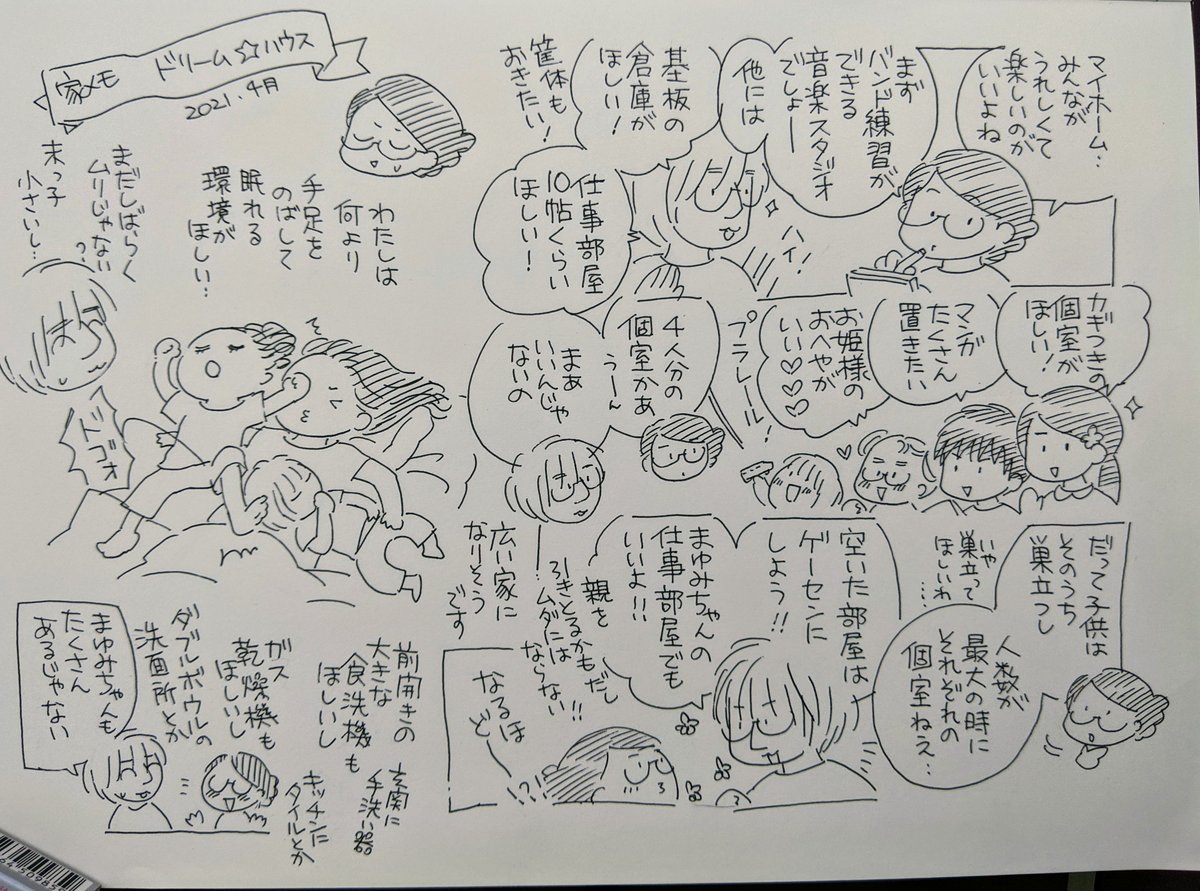 家メモ ドリーム☆ハウス
2021.4月
マイホーム…
みんなが
うれしくて
楽しいのが
いいよね
まず
バンド練習が
できる
音楽スタジオ
でしょー
他には
基板の
倉庫が
ほしい!
筐体も
おきたい!
仕事部屋
10帖くらい
ほしい!
ハイ!
カギつきの
個室が
ほしい!
マンガ
たくさん
置きたい
お姫様の
おへやが
いい♡♡♡♡
プラレール!
4人分の
個室かあ
うーん
まあ
いいんじゃ
ないの
だって子供は
そのうち
巣立つし
いや
巣立って
ほしいわ…
人数が
最大の時に
それぞれの
個室ねえ…
空いた部屋は
ゲーセンに
しよう!!
まゆみちゃんの
仕事部屋でも
いいよ!!
親を
引きとるかもだし
ムダには
ならない!!
なるほ
ど
!?
広い家に
なりそう
です
わたしは
何より
手足を
のばして
眠れる
環境が
ほしい…
まだしばらく
ムリじゃない
?
末っ子
小さいし…
ドゴォ
前開きの
大きな
食洗機も
ほしいし
ガス
乾燥機も
ほしいし
ダブルボウルの
洗面所とか
玄関に
手洗い器
キッチンに
タイルとか
まゆみちゃんも
たくさん
あるじゃない